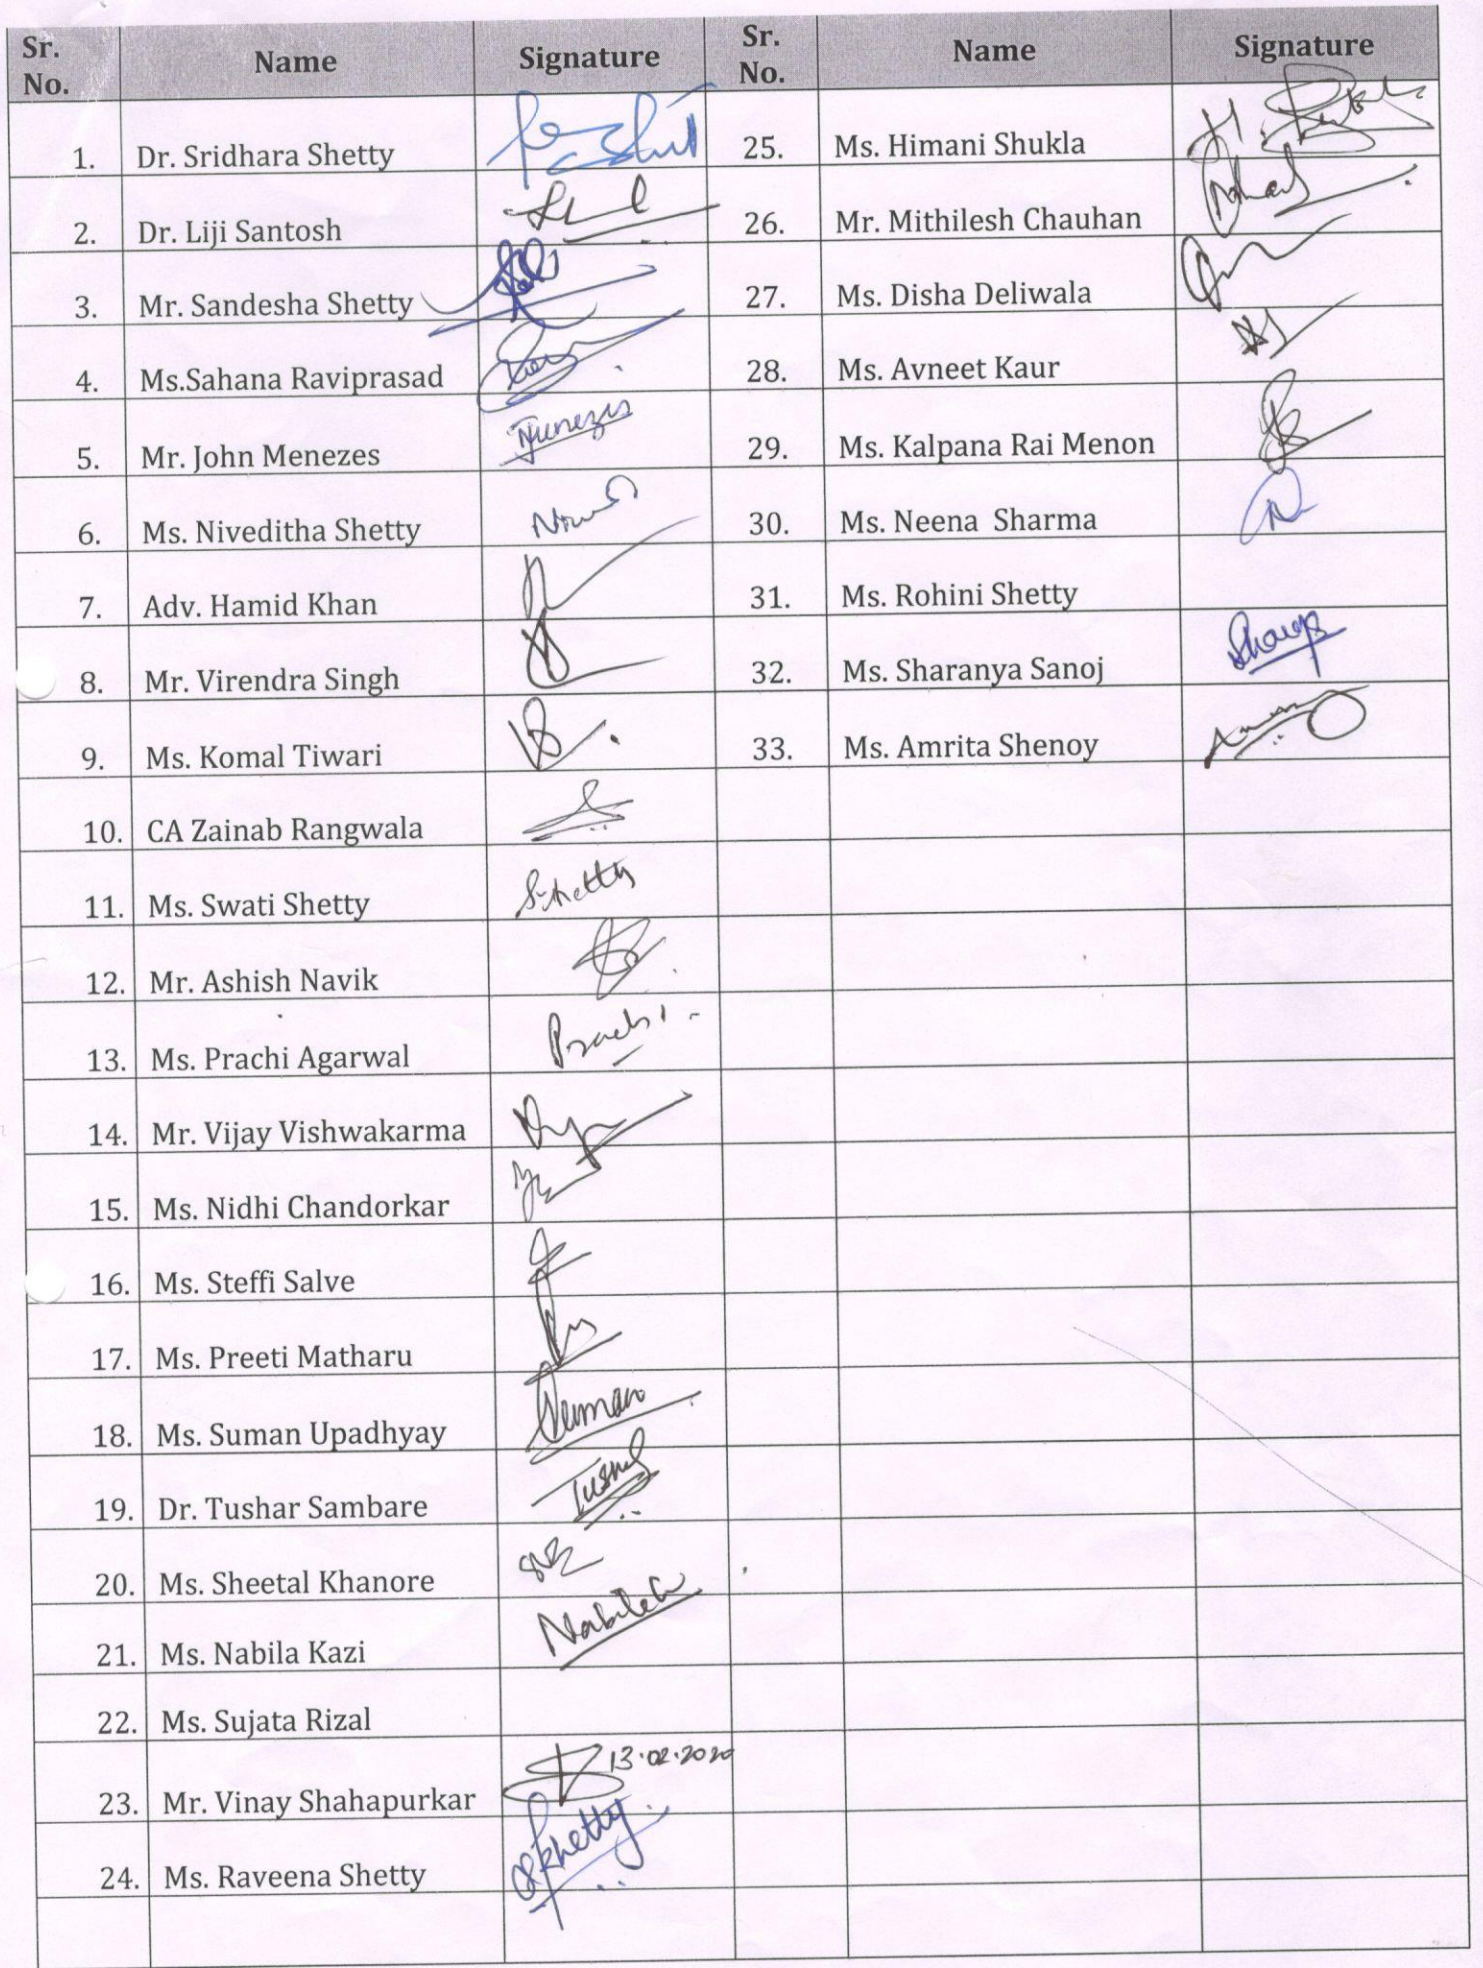 Sr. No. Name Signature Sr. No. Name Signature
1. Dr. Sridhara Shetty 25. Ms. Himani Shukla
2. Dr. Liji Santosh 26. Mr. Mithilesh Chauhan
3. Mr. Sandesha Shetty 27. Ms. Disha Deliwala
4. Ms.Sahana Raviprasad 28. Ms. Avneet Kaur
5. Mr. John Menezes 29. Ms. Kalpana Rai Menon
6. Ms. Niveditha Shetty 30. Ms. Neena Sharma
7. Adv. Hamid Khan 31. Ms. Rohini Shetty
8. Mr. Virendra Singh 32. Ms. Sharanya Sanoj
9. Ms. Komal Tiwari 33. Ms. Amrita Shenoy
10. CA Zainab Rangwala
11. Ms. Swati Shetty Shetty
12. Mr. Ashish Navik
13. Ms. Prachi Agarwal Prachi
14. Mr. Vijay Vishwakarma
15. Ms. Nidhi Chandorkar
16. Ms. Steffi Salve
17. Ms. Preeti Matharu
18. Ms. Suman Upadhyay Suman
19. Dr. Tushar Sambare
20. Ms. Sheetal Khanore
21. Ms. Nabila Kazi
22. Ms. Sujata Rizal
23. Mr. Vinay Shahapurkar 13.02.2020
24. Ms. Raveena Shetty